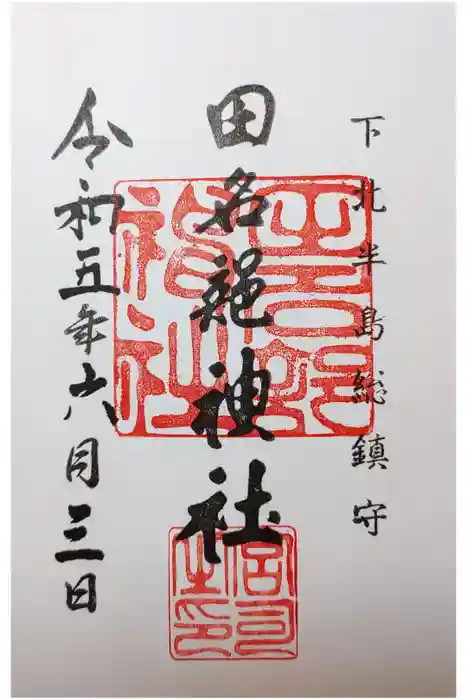 下北半島総鎮守
田名部神社
令和五年六月三日
宮司之印